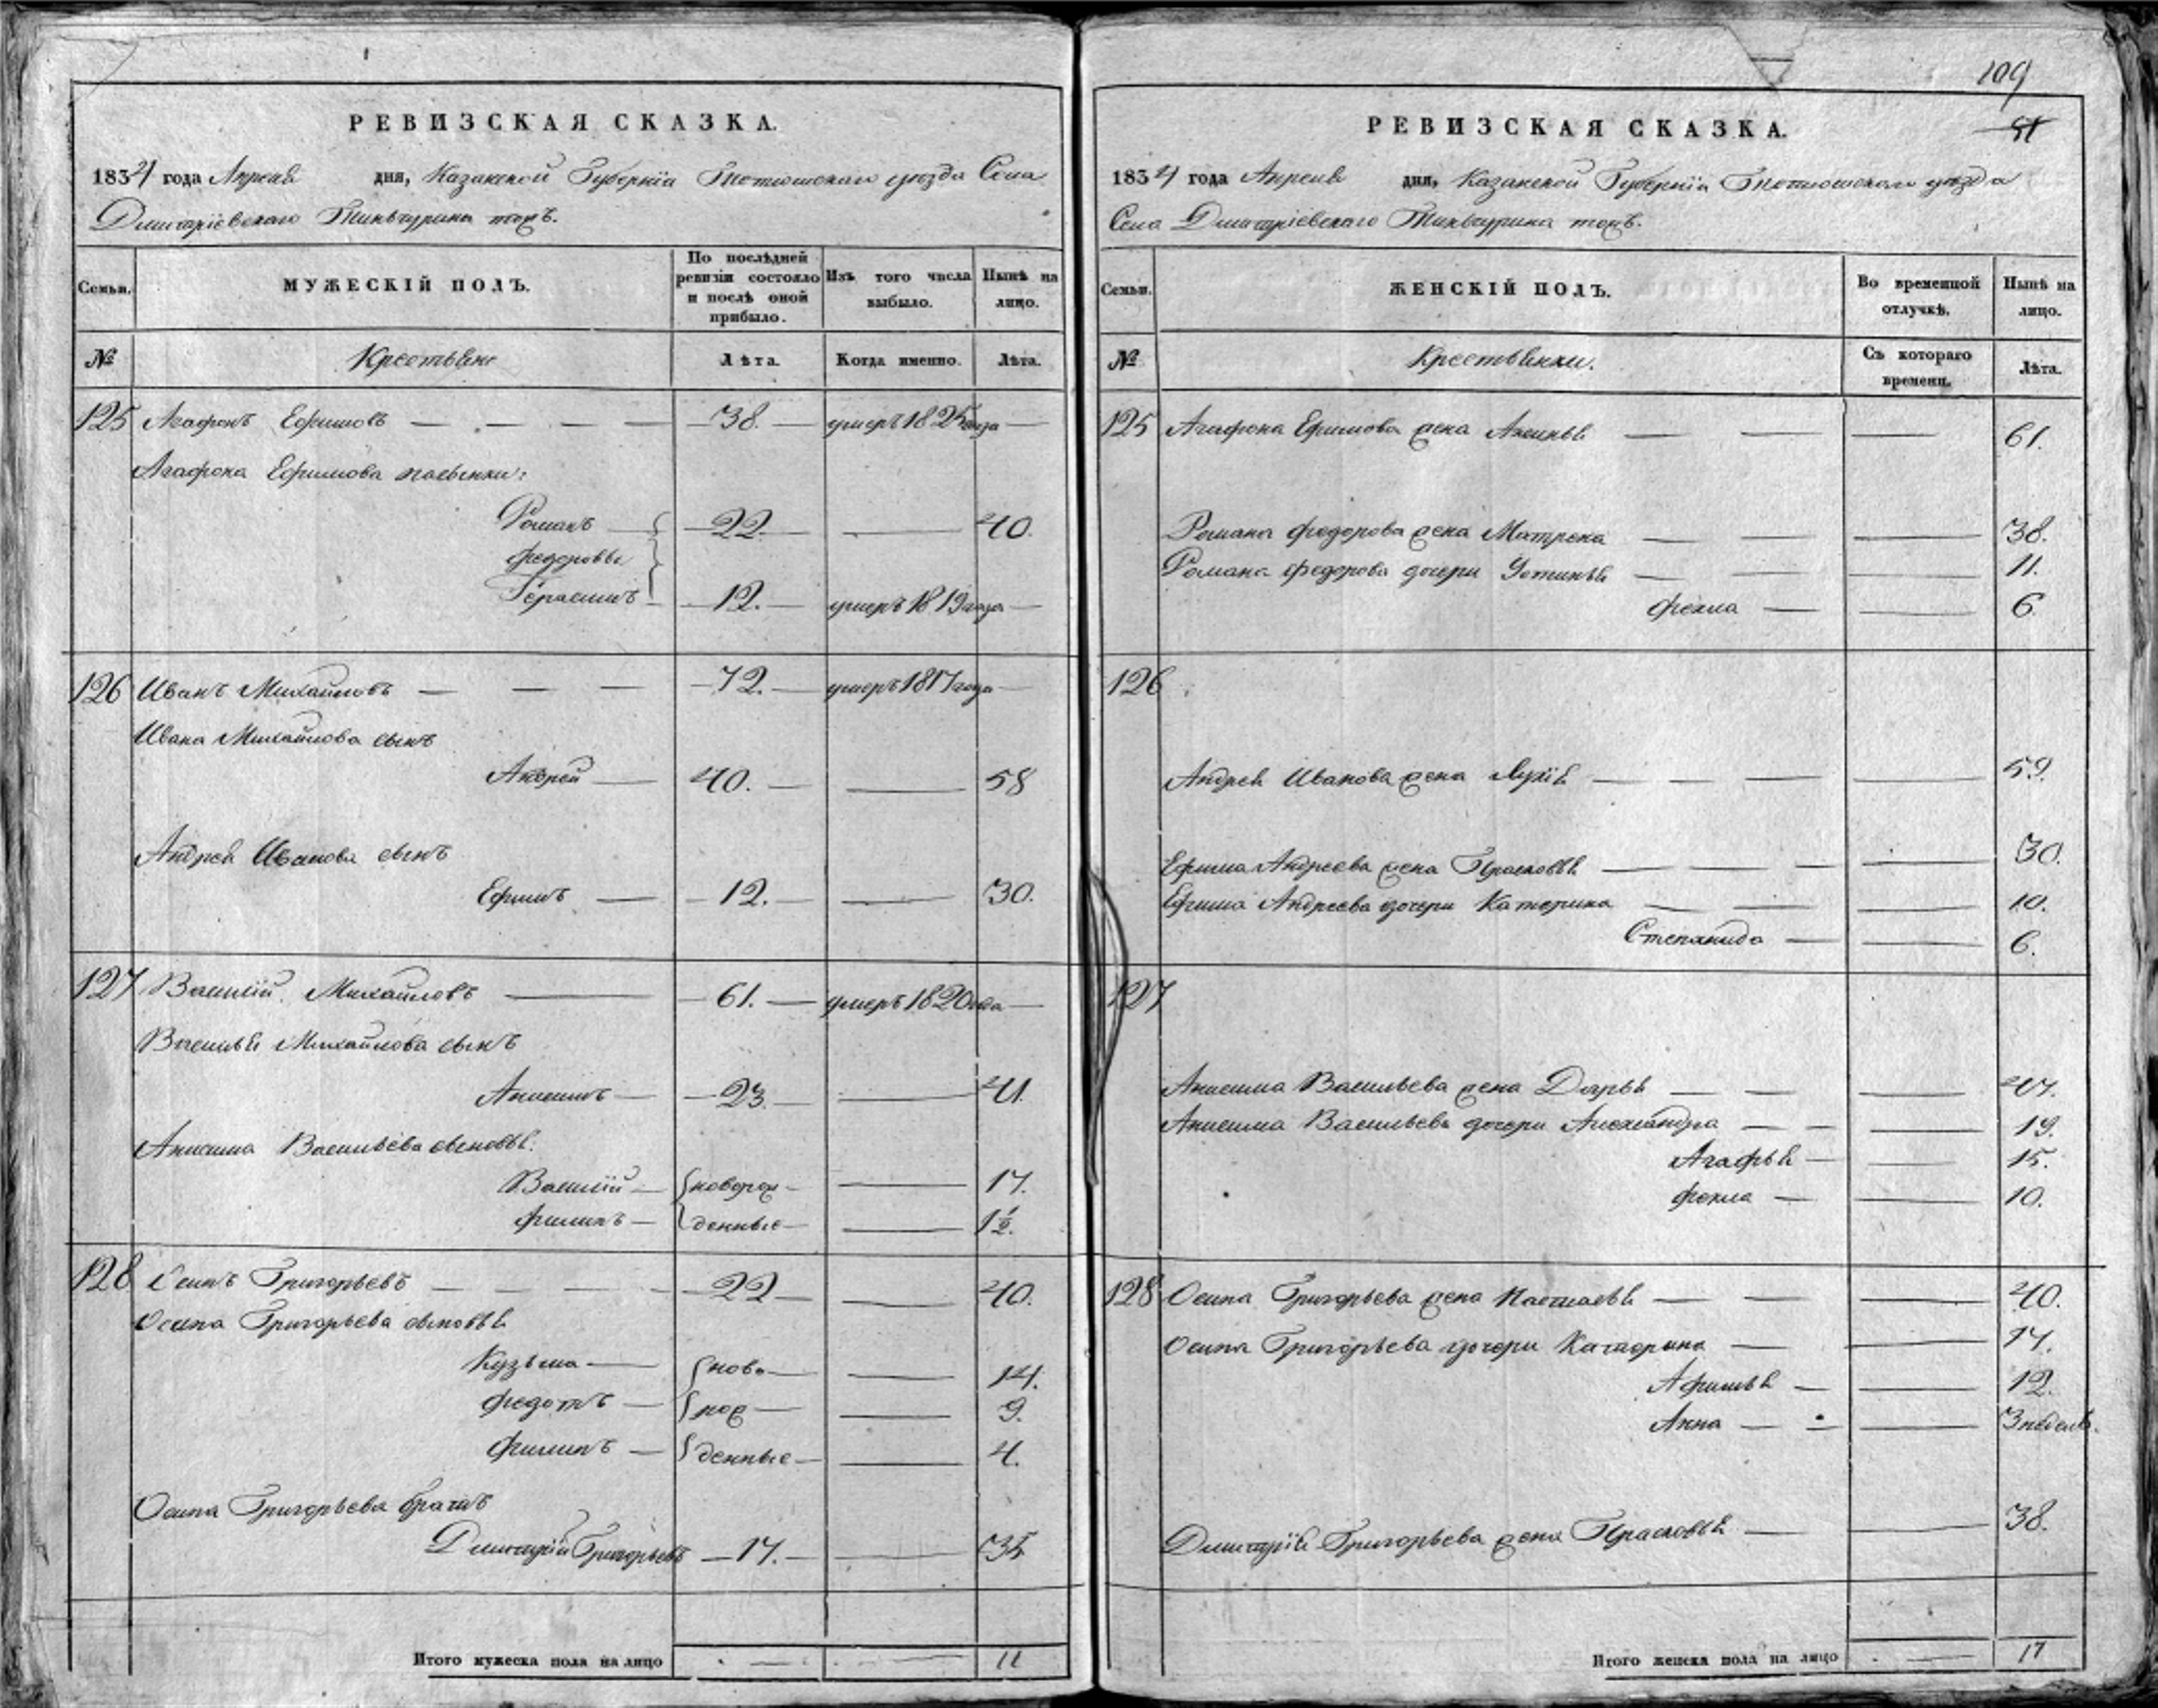 РЕВИЗСКАЯ СКАЗКА.
1834 года Апреля дня, Казанской Губернiи Тетюшскаго уезда Села
Дмитрiевскаго Тинчурина тожъ.
Семьи.
МУЖЕСКIЙ ПОЛЪ.
По послѣдней ревизiи состояло и послѣ оной прибыло.
Изъ того числа выбыло.
Нынѣ на лицо.
№
Крестьяне
Лѣта.
Когда именно.
Лѣта.
125 Агафонъ Ефимовъ 38. умеръ 1825 года
Агафона Ефимова пасынки:
Романъ 22. 40.
Федоровы
Герасимъ 12. умеръ 1819 года
126 Иванъ Михайловъ 72. умеръ 1817 года
Ивана Михайлова сынъ
Андрей 40. 58
Андрея Иванова сынъ
Ефимъ 12. 30.
127 Василiй Михайловъ 61. умеръ 1820 года
Василья Михайлова сынъ
Анисимъ 23. 41.
Анисима Васильева сыновья.
Василiй новорож 17.
Филипъ денные 1½.
128 Осипъ Григорьевъ 22 40.
Осипа Григорьева сыновья
Кузьма ново 14.
Федотъ рож 9.
Филипъ денные 4.
Осипа Григорьева братъ
Дмитрiй Григорьевъ 17. 35
Итого мужеска пола на лицо 11
109
51
РЕВИЗСКАЯ СКАЗКА.
1834 года Апреля дня, Казанской Губернiи Тетюшскаго уезда
Села Дмитрiевскаго Тинчурина тожъ.
Семьи.
ЖЕНСКIЙ ПОЛЪ.
Во временной отлучкѣ.
Нынѣ на лицо.
№
Крестьянки.
Съ котораго времени.
Лѣта.
125 Агафона Ефимова жена Аксинья 61.
Романа Федорова жена Матрена 38.
Романа Федорова дочери Устинья 11.
Фекла 6
126
Андрея Иванова жена Лукiя 59.
Ефима Андреева жена Прасковья 30.
Ефима Андреева дочери Катерина 10.
Степанида 6.
127
Анисима Васильева жена Дарья 47.
Анисима Васильева дочери Александра 19.
Агафья 15.
Фекла 10.
128 Осипа Григорьева жена Настасья 40.
Осипа Григорьева дочери Катерина 17.
Афимья 12.
Анна 3 недель.
Дмитрiя Григорьева жена Прасковья 38.
Итого женска пола на лицо 17